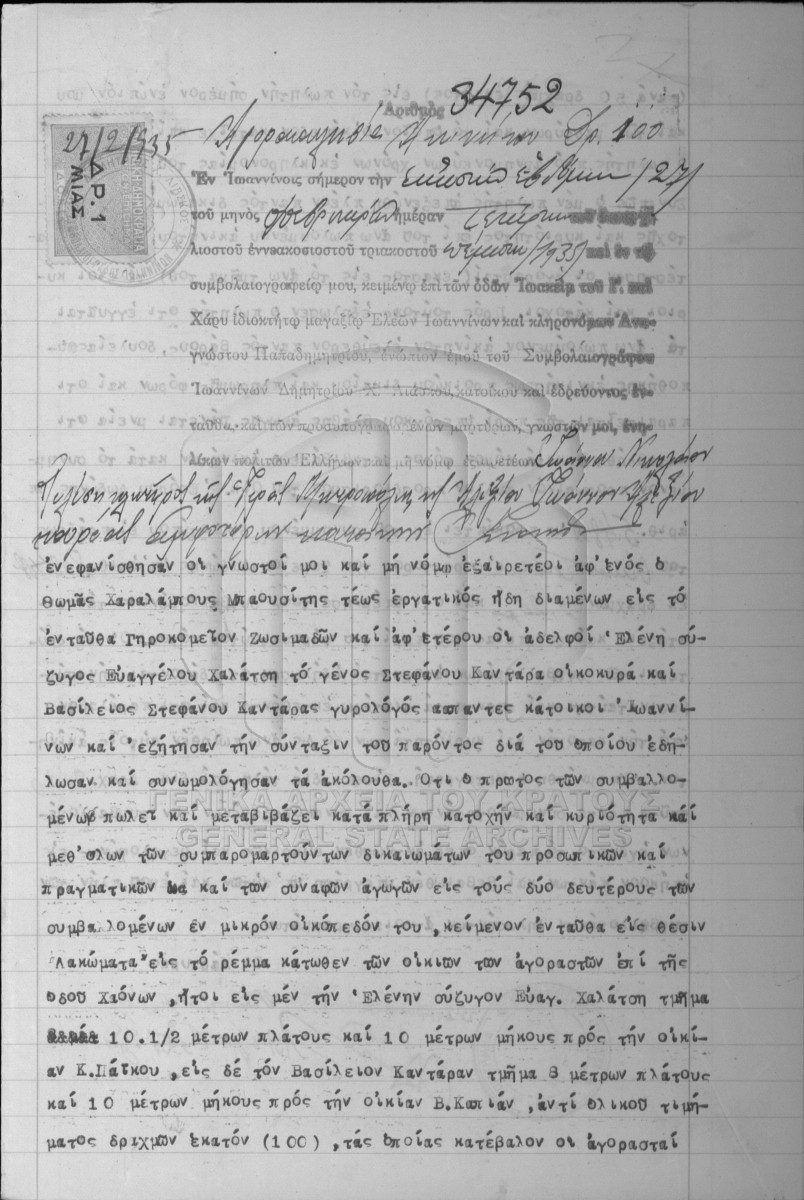 Ἀριθμὸς 34752
27/2/1935 Ἀγοραπωλησία Ἀκινήτου Δρ. 100
ΔΡ. 1
ΜΙΑΣ
Ἐν Ἰωαννίνοις σήμερον τὴν εἰκοστὴν ἑβδόμην /27/
τοῦ μηνὸς Φεβρουαρίου ἡμέραν Τετάρτην τοῦ
λιοστοῦ ἐννεακοσιοστοῦ τριακοστοῦ πέμπτου /1935/ καὶ ἐν τῷ
συμβολαιογραφείῳ μου, κειμένῳ ἐπὶ τῶν ὁδῶν Ἰωακεὶμ τοῦ Γ. καὶ
Χάρυ ἰδιοκτήτῳ μαγαζίῳ Ἐλεῶν Ἰωαννίνων καὶ κληρονόμων Ἀνα-
γνώστου Παπαδημητρίου, ἐνώπιον ἐμοῦ τοῦ Συμβολαιογράφου
Ἰωαννίνων Δημητρίου Χ. Λιάσκου, κατοίκου καὶ ἑδρεύοντος ἐν-
ταῦθα, καὶ τῶν προσυπογραφομένων μαρτύρων, γνωστῶν μοι, ἐνη-
λίκων πολιτῶν Ἑλλήνων καὶ μὴ νόμῳ ἐξαιρετέων Ἰωάννου Νικολάου
τῆς Ἱερᾶς Μητροπόλεως καὶ Ἀλεξίου Ἰωάννου Ἀλεξίου
κουρέως ἀμφοτέρων κατοίκων
ἐνεφανίσθησαν οι γνωστοί μοι καί μή νόμῳ ἐξαιρετέοι ἀφ'ἑνός ὁ
Θωμᾶς Χαραλάμπους Μπαουσίτης τέως ἐργατικός ἤδη διαμένων εἰς τό
ἐνταῦθα Γηροκομεῖον Ζωσιμαδῶν καί ἀφ'ετέρου οι ἀδελφοί 'Ελένη σύ-
ζυγος Εὐαγγέλου Χαλάτση τό γένος Στεφάνου Καντάρα οικοκυρά καί
Βασίλειος Στεφάνου Καντάρας γυρολόγός απαντες κάτοικοι 'Ιωαννί-
νων καί 'εζήτησαν τήν σύνταξιν του παρόντος διά του ὁποίου ἐδή-
λωσαν καί συνωμολόγησαν τά ἀκόλουθα. Οτι ὁ πρωτος τῶν συμβαλλο-
μένων πωλεῖ καί μεταβιβάζει κατά πλήρη κατοχήν καί κυριότητα καί
μεθ'ὅλων τῶν συμπαρομαρτούντων δικαιωμάτων του προσωπικῶν καί
πραγματικῶν και των συναφῶν ἀγωγῶν εἰς τούς δύο δευτέρους τῶν
συμβαλομένων ἐν μικρόν οἰκόπεδόν του ,κείμενον ἐνταῦθα εἰς θέσιν
Λακώματα"εἰς τό ρέμμα κάτωθεν τῶν οἰκιων των ἀγοραστῶν ἐπί τῆς
οδοῦ Χιόνων ,ἤτοι εἰς μέν τήν 'Ελένην σύζυγον Εὐαγ. Χαλάτση τμῆμα
10.1/2 μέτρων πλάτους καί 10 μέτρων μήκους πρός τήν οἰκί-
αν Κ.Πάϊκου ,εἰς δέ τόν Βασίλειον Καντάραν τμῆμα 8 μέτρων πλάτους
καί 10 μέτρων μήκους πρός τήν οἰκίαν Β.Καπιάν ,ἀντί ὁλικοῦ τιμή-
ματος δριχμῶν ἑκατόν (100) ,τάς ὁποίας κατέβαλον οι ἀγορασταί
ΓΕΝΙΚΑ ΑΡΧΕΙΑ ΤΟΥ ΚΡΑΤΟΥΣ
GENERAL STATE ARCHIVES